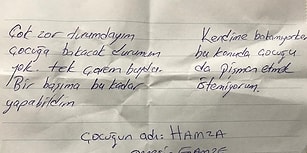 Çok zor durumdayım
çocuğa bakacak durumum
yok. tek çarem buydu.
Bir başıma bu kadar
yapabildim
Kendime bakamıyorken
bu konuda çocuğu
da pişman etmek
istemiyorum.
Çocuğun adı: HAMZA